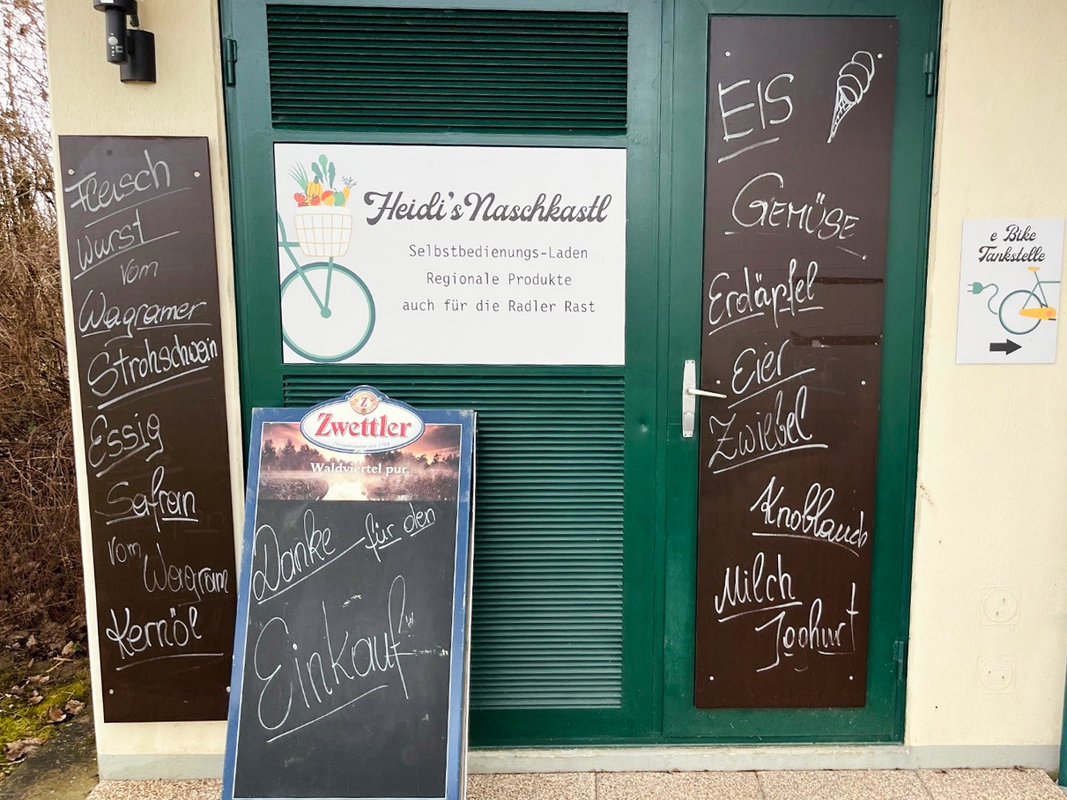 Fleisch
Wurst
vom
Wagramer
Strohschwein
Essig
Safran
vom
Wagram
Kernöl
Heidi's Naschkastl
Selbstbedienungs-Laden
Regionale Produkte
auch für die Radler Rast
Z
Zwettler
Waldviertel pur.
Danke für den
Einkauf
EIS
GEMÜSE
Erdäpfel
Eier
Zwiebel
Knoblauch
Milch
Joghurt
e Bike
Tankstelle